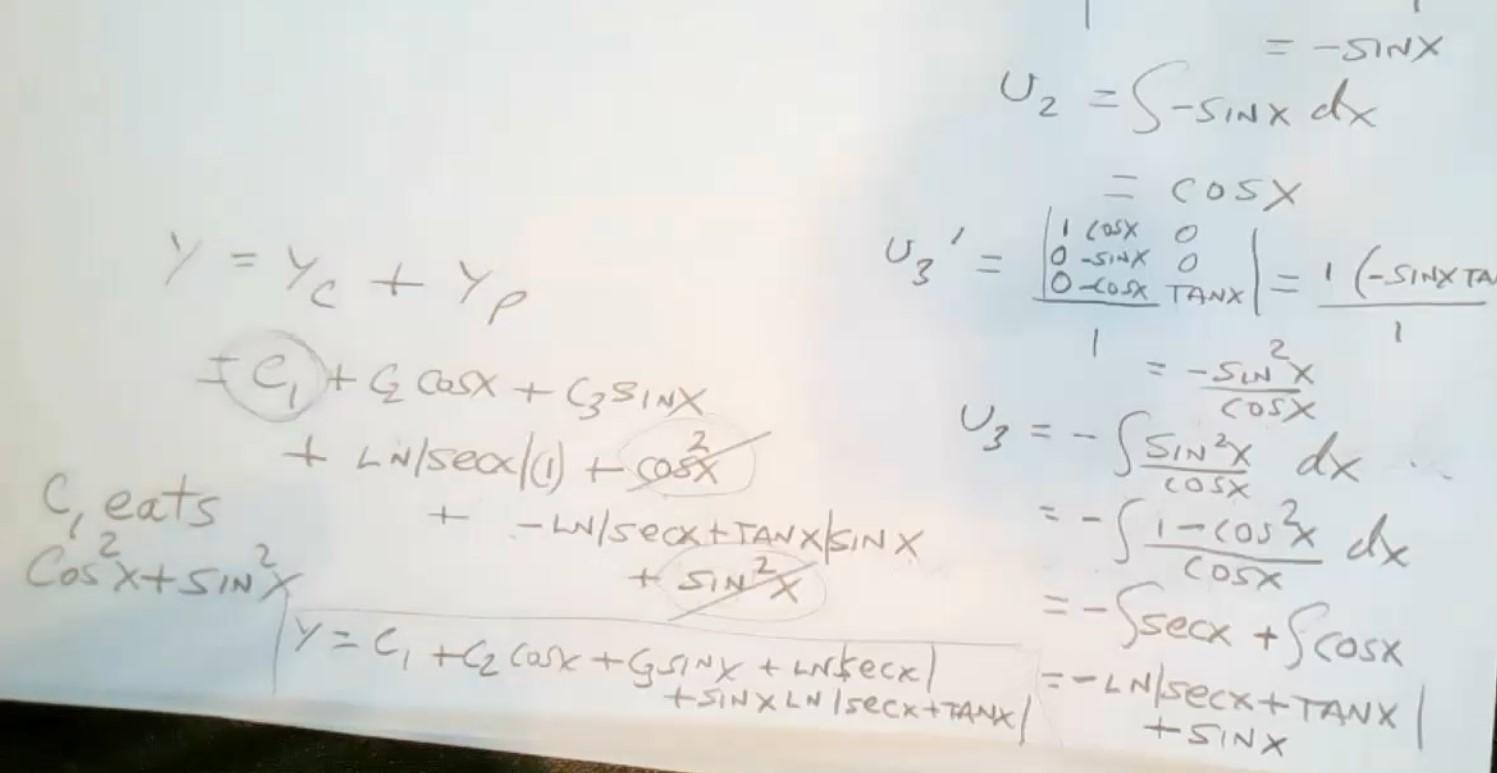 = -SINX
U₂ = ∫-SINX dx
= COSX
U₃' = |1 COSX 0
0 -SINX 0
0 -COSX TANX| / 1 = 1 (-SINX TA / 1
= -SIN²X / COSX
U₃ = -∫ SIN²X / COSX dx
= -∫ 1-COS²X / COSX dx
= -∫secx + ∫COSX
= -LN|secx+TANX|
+SINX
Y = Y_C + Y_P
= C₁ + C₂ COSX + C₃ SINX
+ LN|secx|(1) + COS²X
+ -LN|secx+TANX|SINX
+ SIN²X
C₁ eats
COS²X+SIN²X
Y = C₁ +C₂ COSX +C₃SINX + LN|secx|
+SINX LN|secx+TANX|